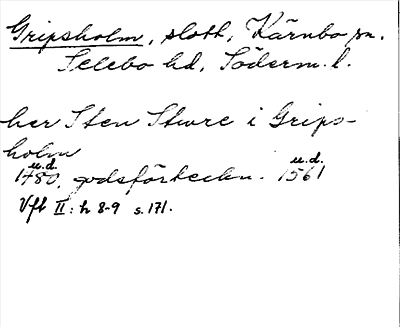 Gripsholm, slott, Kärnbo sn.
Selebo hd, Söderm. l.
her Sten Sture i Grips-
holm
u.d. u.d.
1480, godsförteckn. 1561
Vfl II: h 8-9 s. 171.